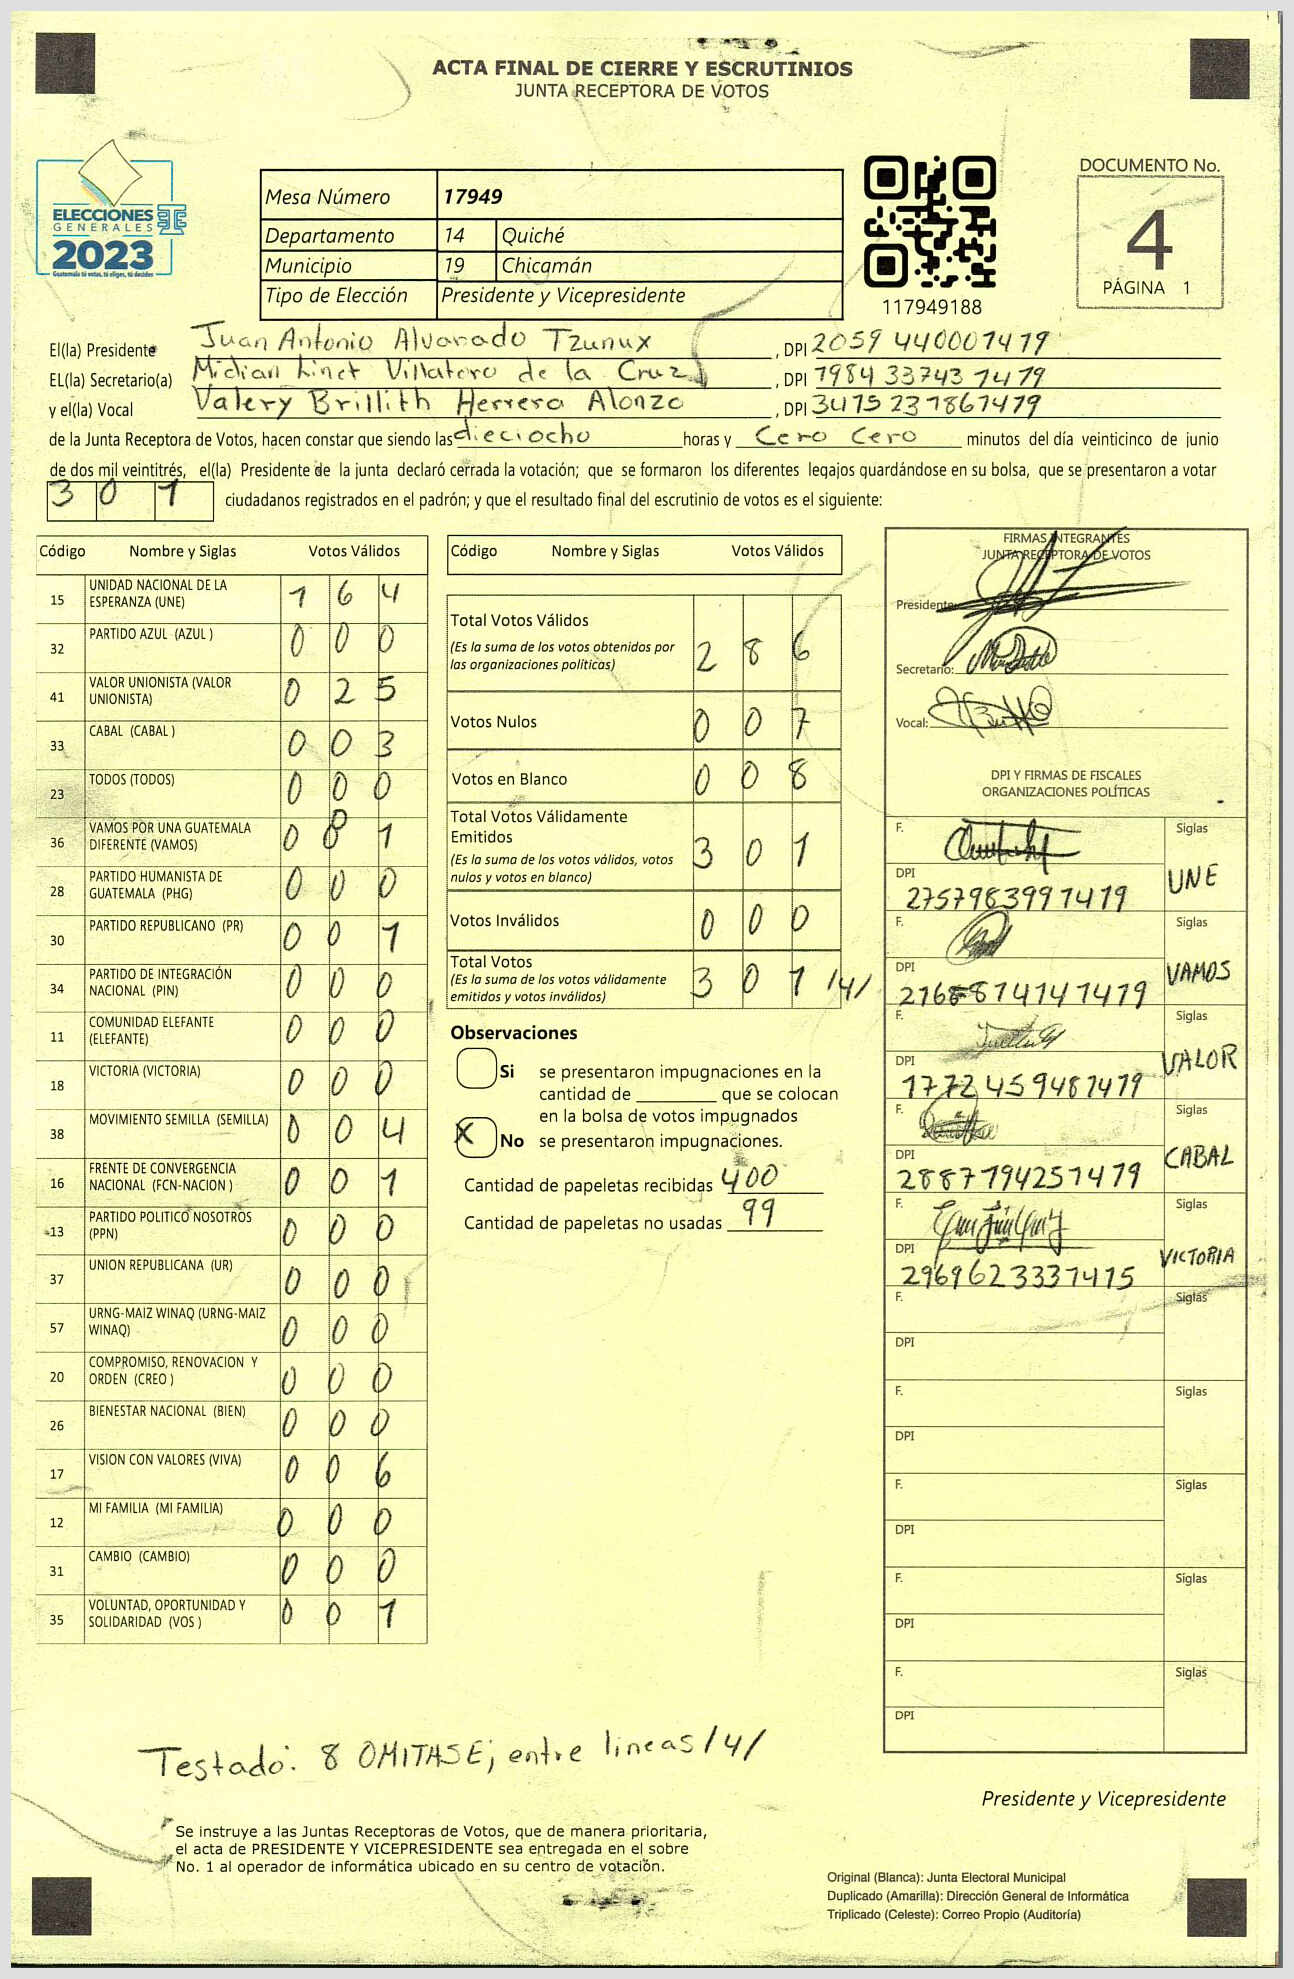 ACTA FINAL DE CIERRE Y ESCRUTINIOS
JUNTA RECEPTORA DE VOTOS
ELECCIONES
GENERALES
2023
Guatemala tú votas, tú eliges, tú decides
Mesa Número 17949
Departamento 14 Quiché
Municipio 19 Chicamán
Tipo de Elección Presidente y Vicepresidente
117949188
DOCUMENTO No.
4
PÁGINA 1
El(la) Presidente Juan Antonio Alvarado Tzunux, DPI 2059 44000 7479
EL(la) Secretario(a) Midian Linet Villatoro de la Cruz, DPI 7984 33743 7479
y el(la) Vocal Valery Brillith Herrera Alonzo, DPI 3475 23786 7479
de la Junta Receptora de Votos, hacen constar que siendo las dieciocho horas y Cero Cero minutos del día veinticinco de junio
de dos mil veintitrés, el(la) Presidente de la junta declaró cerrada la votación; que se formaron los diferentes legajos guardándose en su bolsa, que se presentaron a votar
301 ciudadanos registrados en el padrón; y que el resultado final del escrutinio de votos es el siguiente:
Código Nombre y Siglas Votos Válidos
15 UNIDAD NACIONAL DE LA ESPERANZA (UNE) 1 6 4
32 PARTIDO AZUL (AZUL ) 0 0 0
41 VALOR UNIONISTA (VALOR UNIONISTA) 0 2 5
33 CABAL (CABAL ) 0 0 3
23 TODOS (TODOS) 0 0 0
36 VAMOS POR UNA GUATEMALA DIFERENTE (VAMOS) 0 8 1
28 PARTIDO HUMANISTA DE GUATEMALA (PHG) 0 0 0
30 PARTIDO REPUBLICANO (PR) 0 0 1
34 PARTIDO DE INTEGRACIÓN NACIONAL (PIN) 0 0 0
11 COMUNIDAD ELEFANTE (ELEFANTE) 0 0 0
18 VICTORIA (VICTORIA) 0 0 0
38 MOVIMIENTO SEMILLA (SEMILLA) 0 0 4
16 FRENTE DE CONVERGENCIA NACIONAL (FCN-NACION ) 0 0 1
13 PARTIDO POLITICO NOSOTROS (PPN) 0 0 0
37 UNION REPUBLICANA (UR) 0 0 0
57 URNG-MAIZ WINAQ (URNG-MAIZ WINAQ) 0 0 0
20 COMPROMISO, RENOVACION Y ORDEN (CREO ) 0 0 0
26 BIENESTAR NACIONAL (BIEN) 0 0 0
17 VISION CON VALORES (VIVA) 0 0 6
12 MI FAMILIA (MI FAMILIA) 0 0 0
31 CAMBIO (CAMBIO) 0 0 0
35 VOLUNTAD, OPORTUNIDAD Y SOLIDARIDAD (VOS ) 0 0 1
Código Nombre y Siglas Votos Válidos
Total Votos Válidos 2 8 6
(Es la suma de los votos obtenidos por
las organizaciones políticas)
Votos Nulos 0 0 7
Votos en Blanco 0 0 8
Total Votos Válidamente
Emitidos 3 0 1
(Es la suma de los votos válidos, votos
nulos y votos en blanco)
Votos Inválidos 0 0 0
Total Votos 3 0 1 /4/
(Es la suma de los votos válidamente
emitidos y votos inválidos)
Observaciones
Si se presentaron impugnaciones en la
cantidad de ________ que se colocan
en la bolsa de votos impugnados
X No se presentaron impugnaciones.
Cantidad de papeletas recibidas 400
Cantidad de papeletas no usadas 99
FIRMAS INTEGRANTES
JUNTA RECEPTORA DE VOTOS
Presidente:
Secretario:
Vocal:
DPI Y FIRMAS DE FISCALES
ORGANIZACIONES POLÍTICAS
F. Siglas UNE
DPI 2757983997479
F. Siglas VAMOS
DPI
F. Siglas VALOR
DPI 1772459487479
F. Siglas CABAL
DPI 2887794257479
F. Siglas VICTORIA
DPI 2969623337415
F. Siglas
DPI
F. Siglas
DPI
F. Siglas
DPI
F. Siglas
DPI
F. Siglas
DPI
Testado: 8 OMITASE; entre lineas /4/
Presidente y Vicepresidente
Se instruye a las Juntas Receptoras de Votos, que de manera prioritaria,
el acta de PRESIDENTE Y VICEPRESIDENTE sea entregada en el sobre
No. 1 al operador de informática ubicado en su centro de votación.
Original (Blanca): Junta Electoral Municipal
Duplicado (Amarilla): Dirección General de Informática
Triplicado (Celeste): Correo Propio (Auditoría)